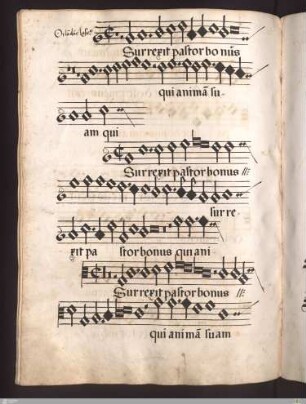 Surrexit pastor bonus
qui animā su-
am qui
Surrexit pastor bonus
surre-
xit pa storbonus qui ani-
Surrexit pastor bonus
qui animā suam